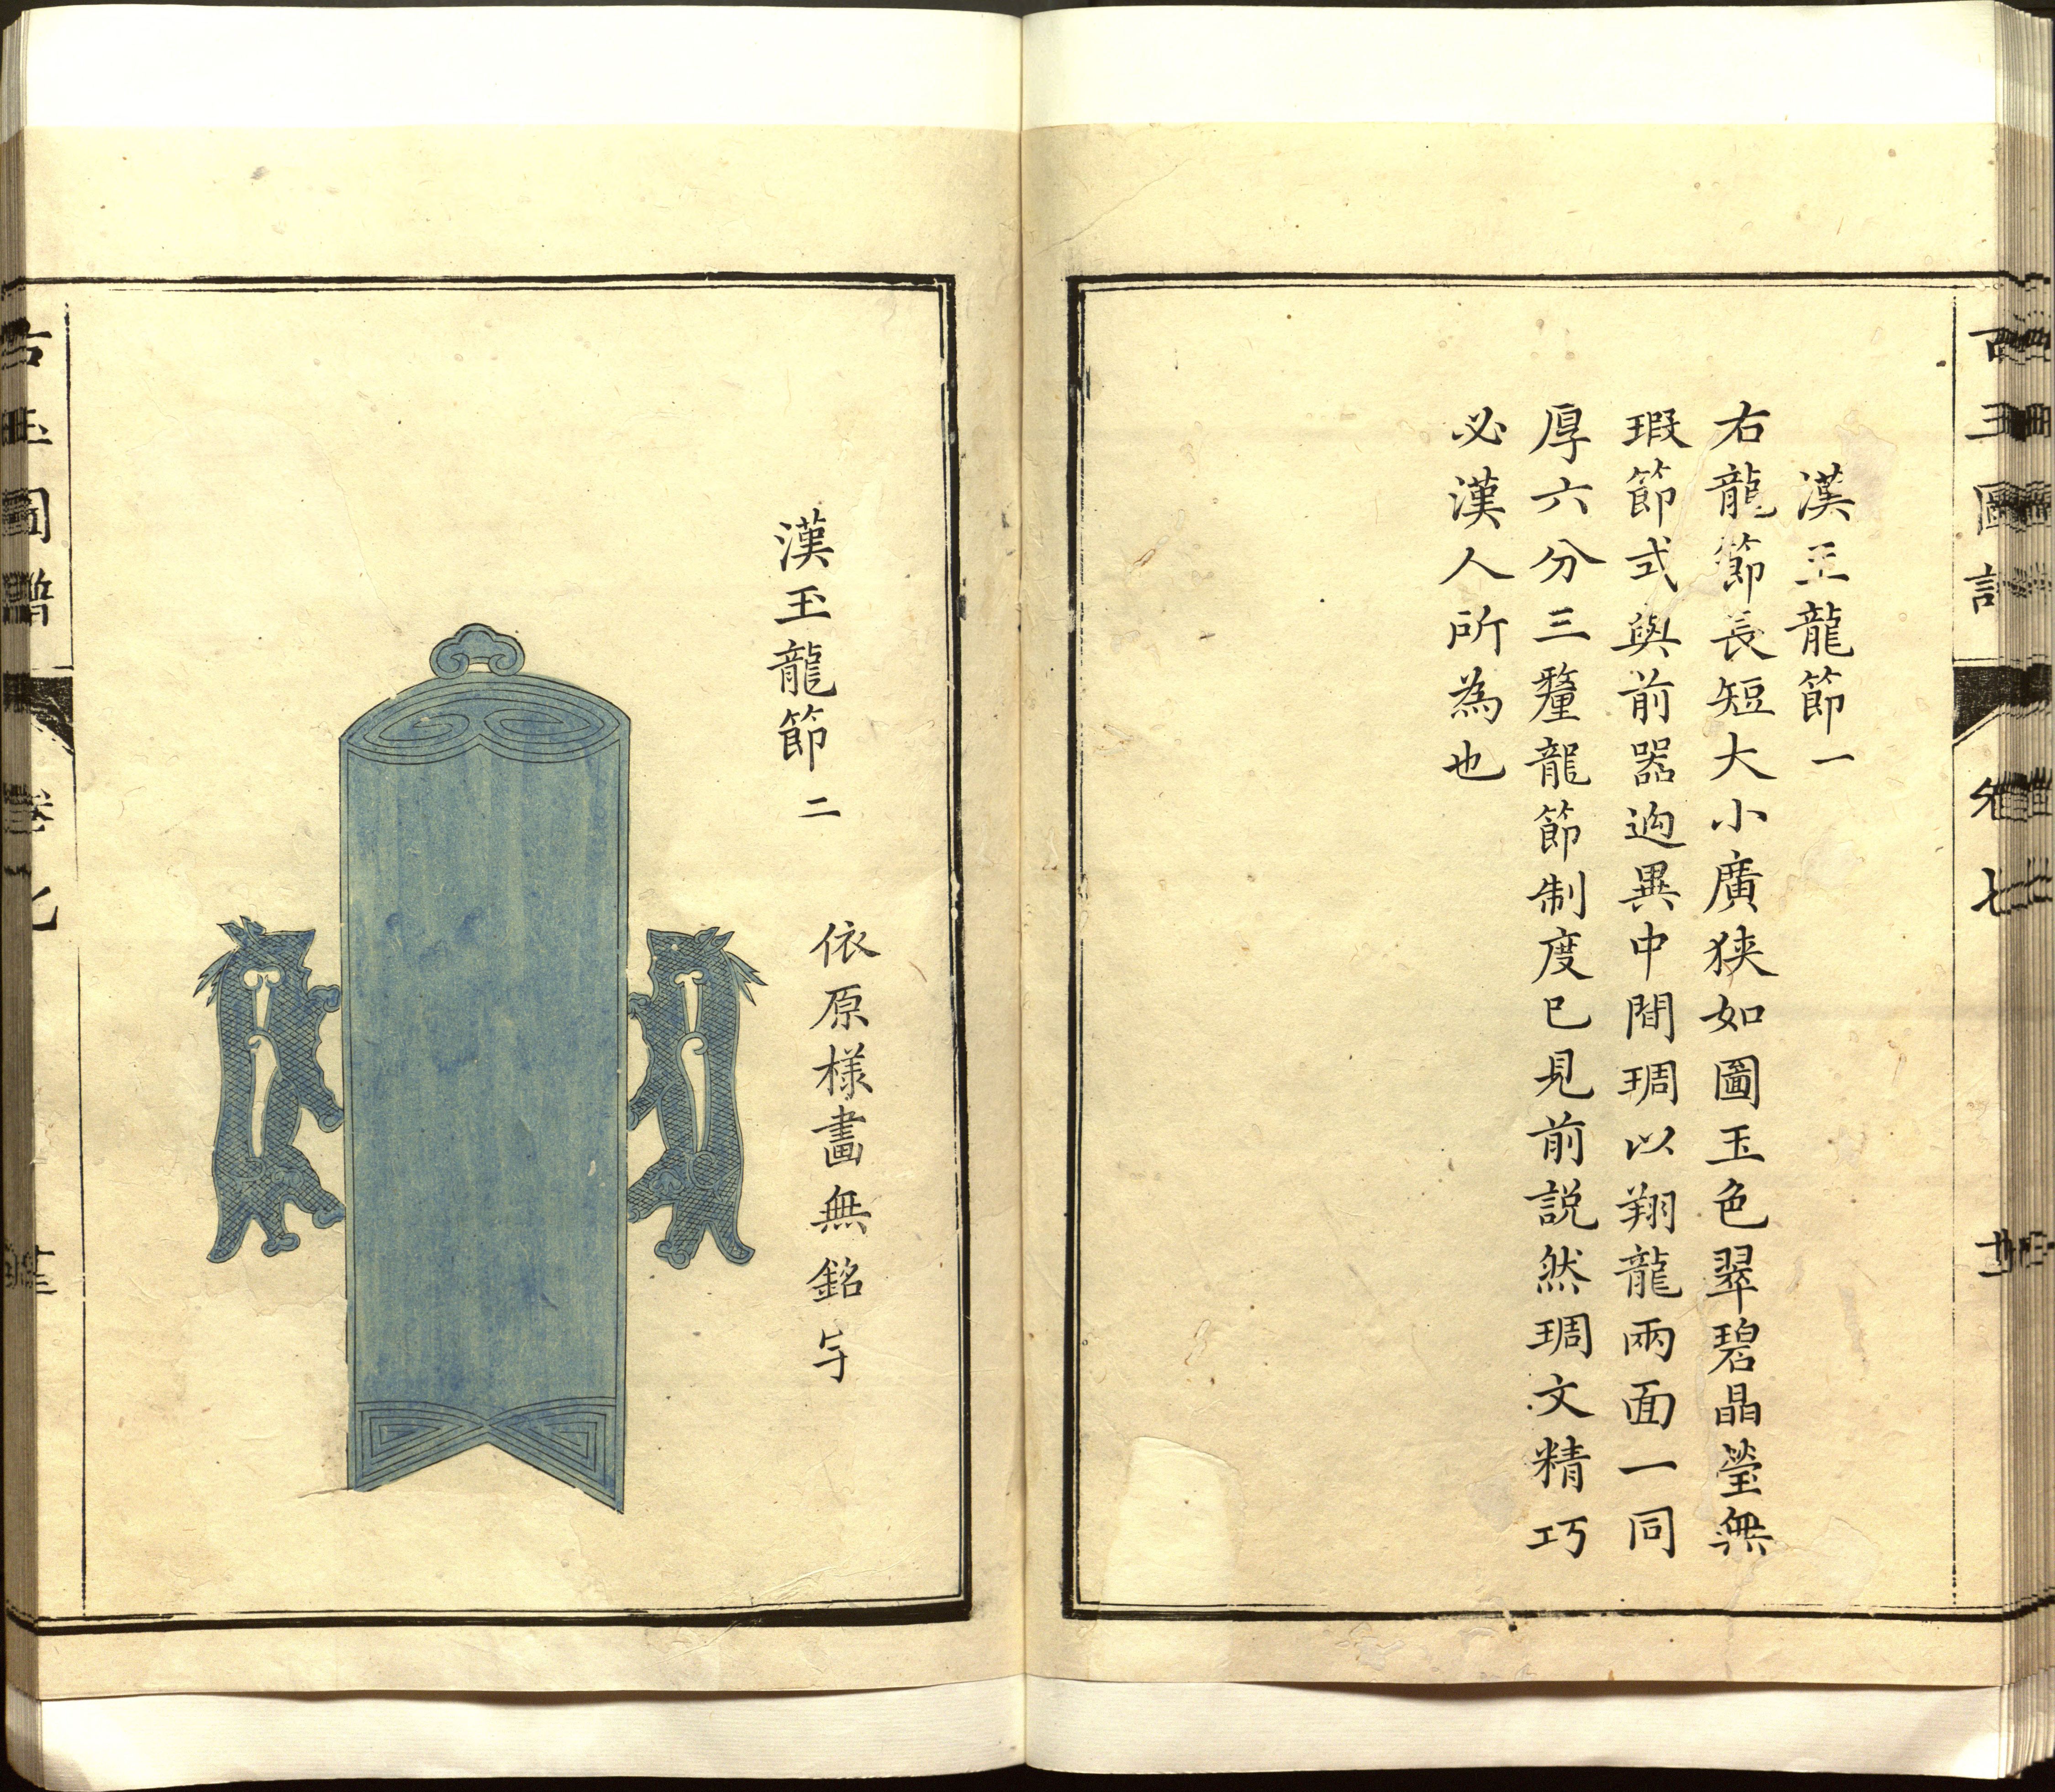 漢玉龍節一
右龍節長短大小廣狹如圖玉色翠碧晶瑩無
瑕節式與前器逈異中間琱以翔龍兩面一同
厚六分三釐龍節制度已見前説然琱文精巧
必漢人所為也
漢玉龍節二
依原樣畫無銘与
古玉圖譜
卷七